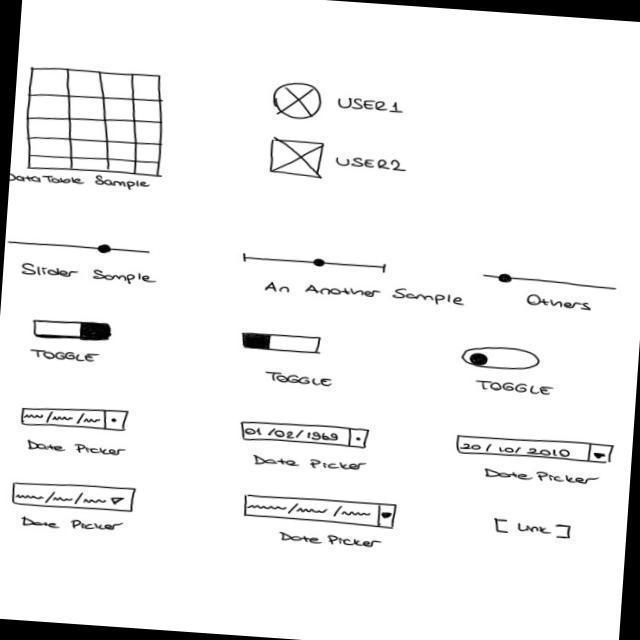 USER1
USER2
DataTable Sample
Slider Sample
An Another Sample
Others
TOGGLE
TOGGLE
TOGGLE
Date Picker
01/02/1969
Date Picker
20/10/2010
Date Picker
Date Picker
Date Picker
[Link]